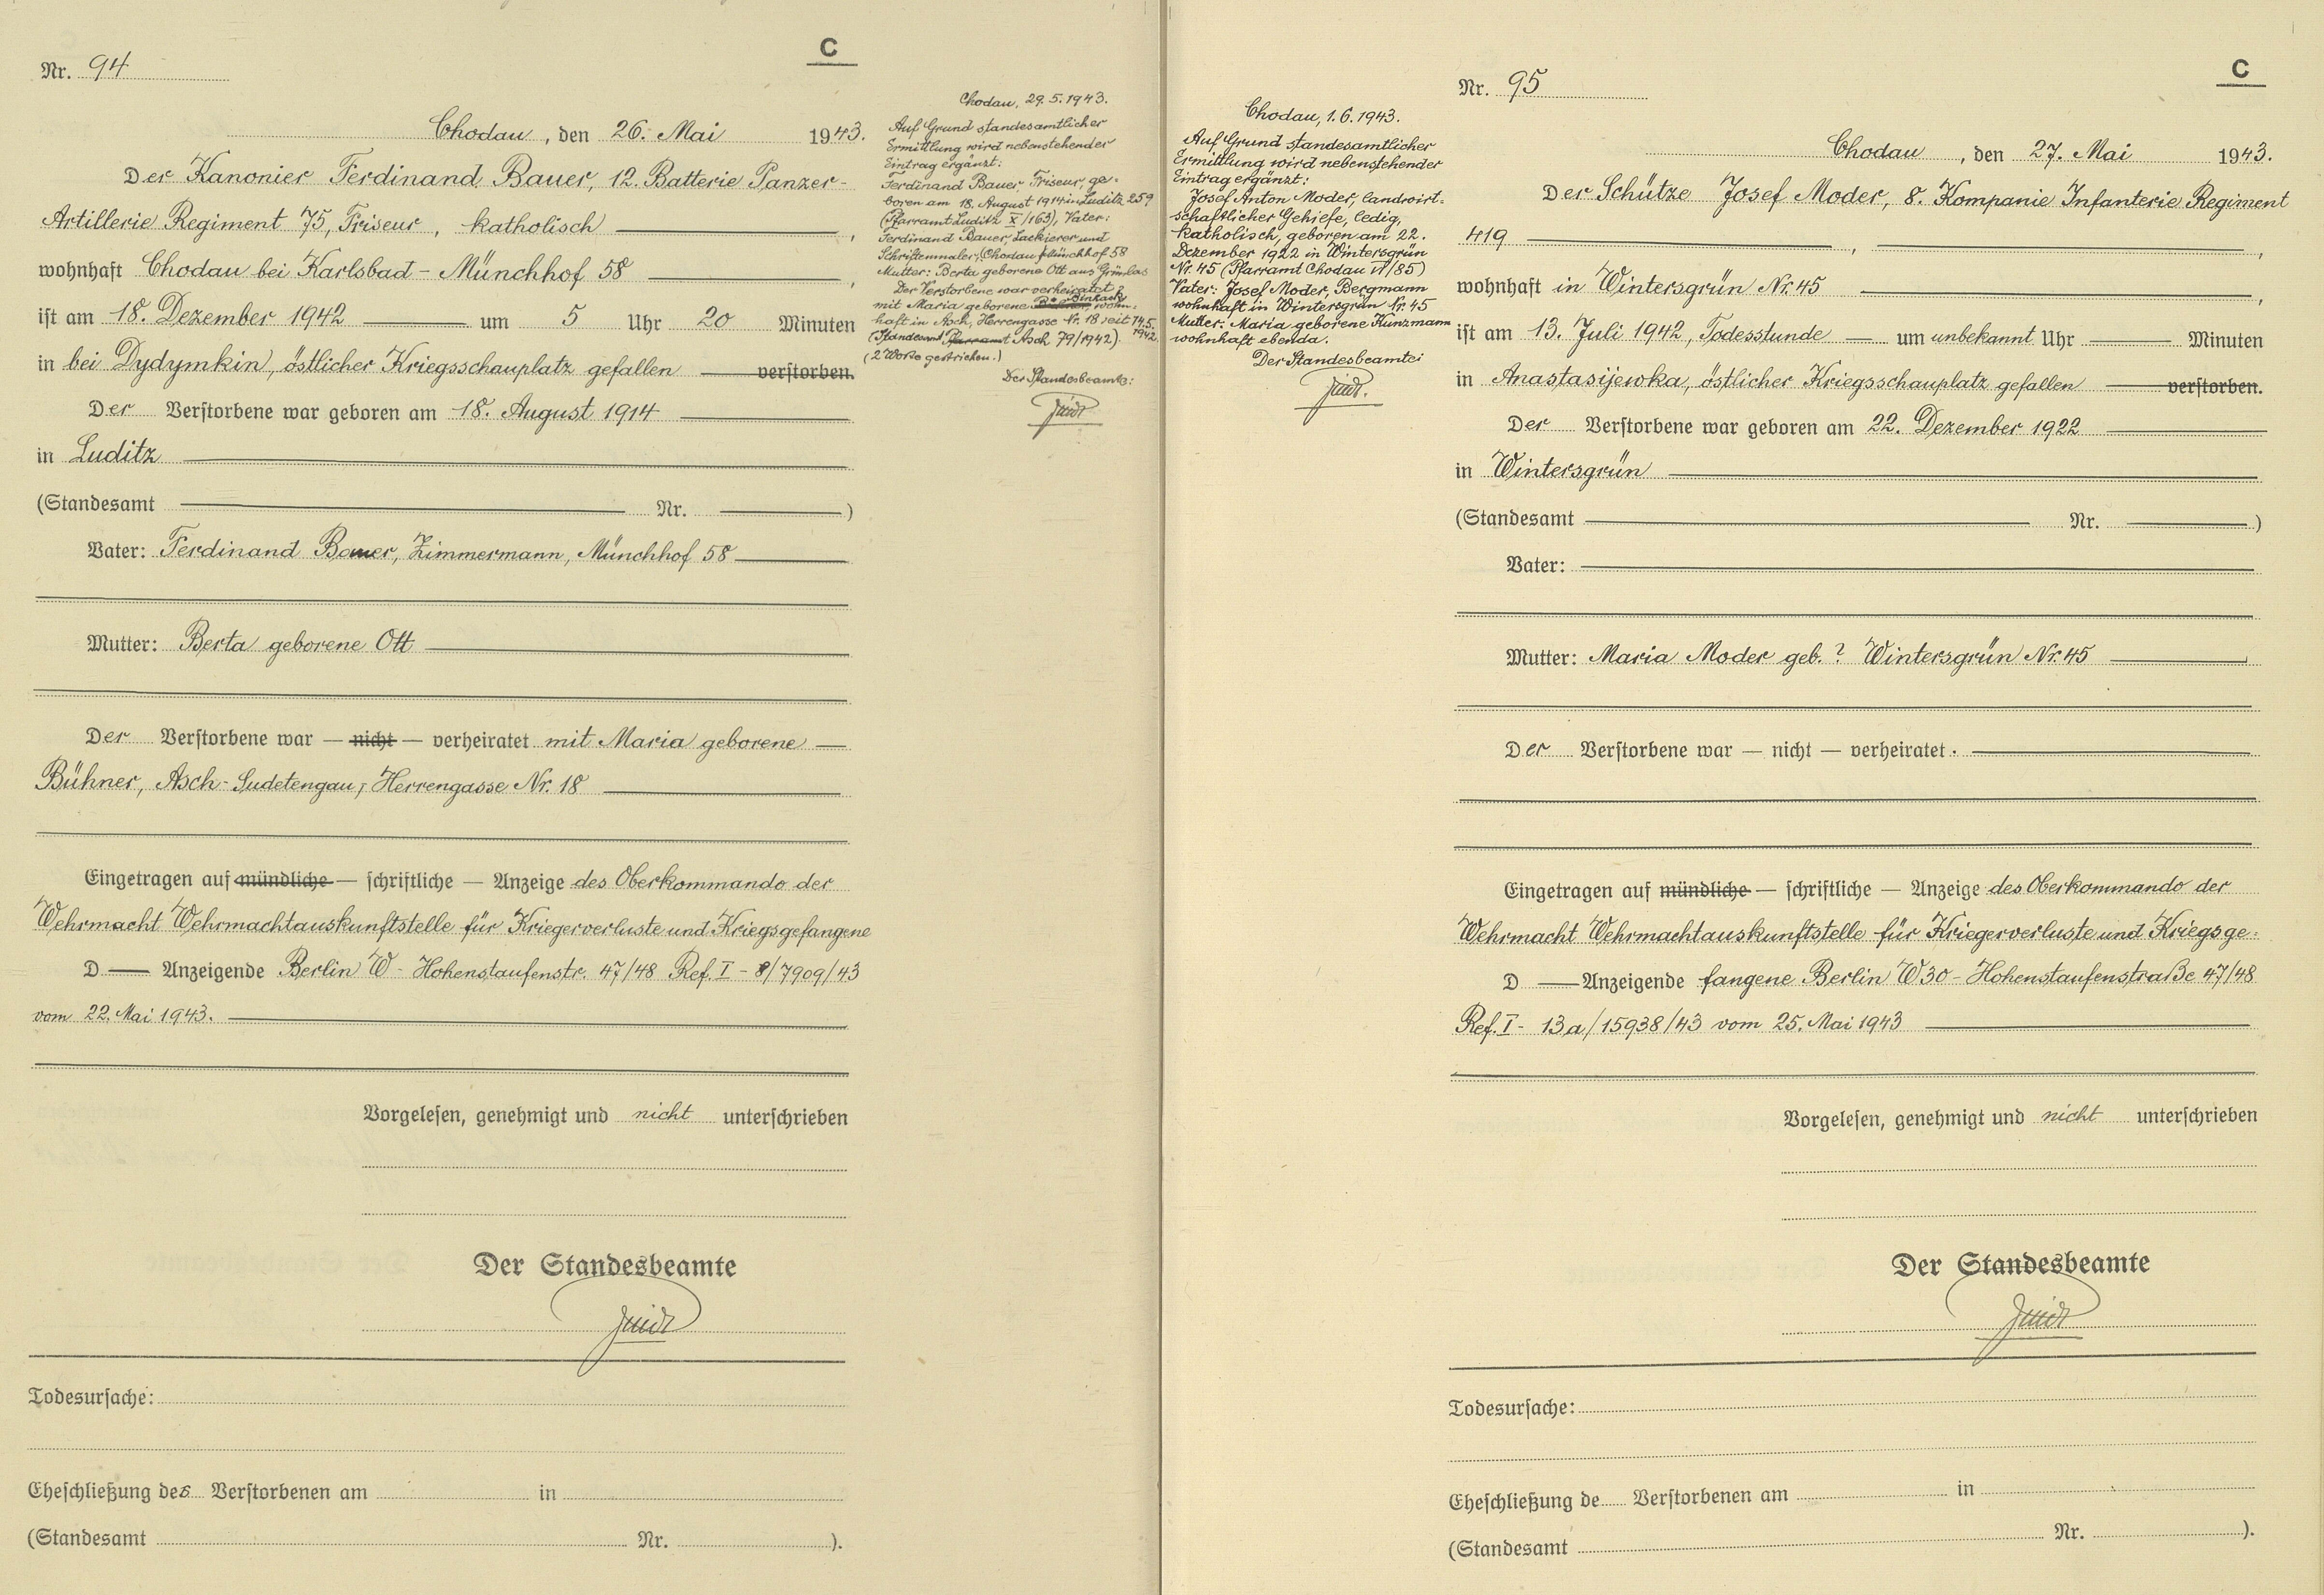 C
Nr. 94
Chodau, den 26. Mai 1943.
Der Kanonier Ferdinand Bauer, 12. Batterie Panzer-
Artillerie Regiment 75, Friseur, katholisch ,
wohnhaft Chodau bei Karlsbad - Münchhof 58 ,
ist am 18. Dezember 1942 um 5 Uhr 20 Minuten
in bei Dydymkin, östlicher Kriegsschauplatz gefallen verstorben.
Der Verstorbene war geboren am 18. August 1914
in Luditz
(Standesamt Nr. )
Vater: Ferdinand Bauer, Zimmermann, Münchhof 58
Mutter: Berta geborene Ott
Der Verstorbene war — nicht — verheiratet mit Maria geborene
Bühner, Asch-Sudetengau, Herrengasse Nr. 18
Eingetragen auf mündliche — schriftliche — Anzeige des Oberkommando der
Wehrmacht Wehrmachtauskunftstelle für Kriegerverluste und Kriegsgefangene
D — Anzeigende Berlin W - Hohenstaufenstr. 47/48 Ref. I - 8/7909/43
vom 22. Mai 1943.
Vorgelesen, genehmigt und nicht unterschrieben
Der Standesbeamte
Todesursache:
Eheschließung des Verstorbenen am in
(Standesamt Nr. ).
Chodau, 29.5.1943.
Auf Grund standesamtlicher
Ermittlung wird nebenstehender
Eintrag ergänzt:
Ferdinand Bauer, Friseur, ge-
boren am 18. August 1914 in Luditz 259
(Pfarramt Luditz X/163), Vater:
Ferdinand Bauer, Lackierer und
Schriftenmaler, Chodau Münchhof 58
Mutter: Berta geborene Ott aus Grünlas
Der Verstorbene war verheiratet
mit Maria geborene wohn-
haft in Asch, Herrengasse Nr. 18 seit 14.5.
1942
(Standesamt Pfarramt Asch 79/1942).
(2 Worte gestrichen.)
Der Standesbeamte:
Chodau, 1.6.1943.
Auf Grund standesamtlicher
Ermittlung wird nebenstehender
Eintrag ergänzt:
Josef Anton Moder, landwirt=
schaftlicher Gehilfe, ledig,
katholisch, geboren am 22.
Dezember 1922 in Wintersgrün
Nr. 45 (Pfarramt Chodau VI/85)
Vater: Josef Moder, Bergmann
wohnhaft in Wintersgrün Nr. 45
Mutter: Maria geborene Kunzmann
wohnhaft ebenda.
Der Standesbeamte:
C
Nr. 95
Chodau, den 27. Mai 1943.
Der Schütze Josef Moder, 8. Kompanie Infanterie Regiment
419 , ,
wohnhaft in Wintersgrün Nr. 45 ,
ist am 13. Juli 1942, Todesstunde um unbekannt Uhr Minuten
in Anastasijewka, östlicher Kriegsschauplatz gefallen verstorben.
Der Verstorbene war geboren am 22. Dezember 1922
in Wintersgrün
(Standesamt Nr. )
Vater:
Mutter: Maria Moder geb.? Wintersgrün Nr. 45
Der Verstorbene war — nicht — verheiratet.
Eingetragen auf mündliche — schriftliche — Anzeige des Oberkommando der
Wehrmacht Wehrmachtauskunftstelle für Kriegerverluste und Kriegsge=
D — Anzeigende fangene Berlin W 30 - Hohenstaufenstraße 47/48
Ref. I - 13a/15938/43 vom 25. Mai 1943
Vorgelesen, genehmigt und nicht unterschrieben
Der Standesbeamte
Todesursache:
Eheschließung de Verstorbenen am in
(Standesamt Nr. ).